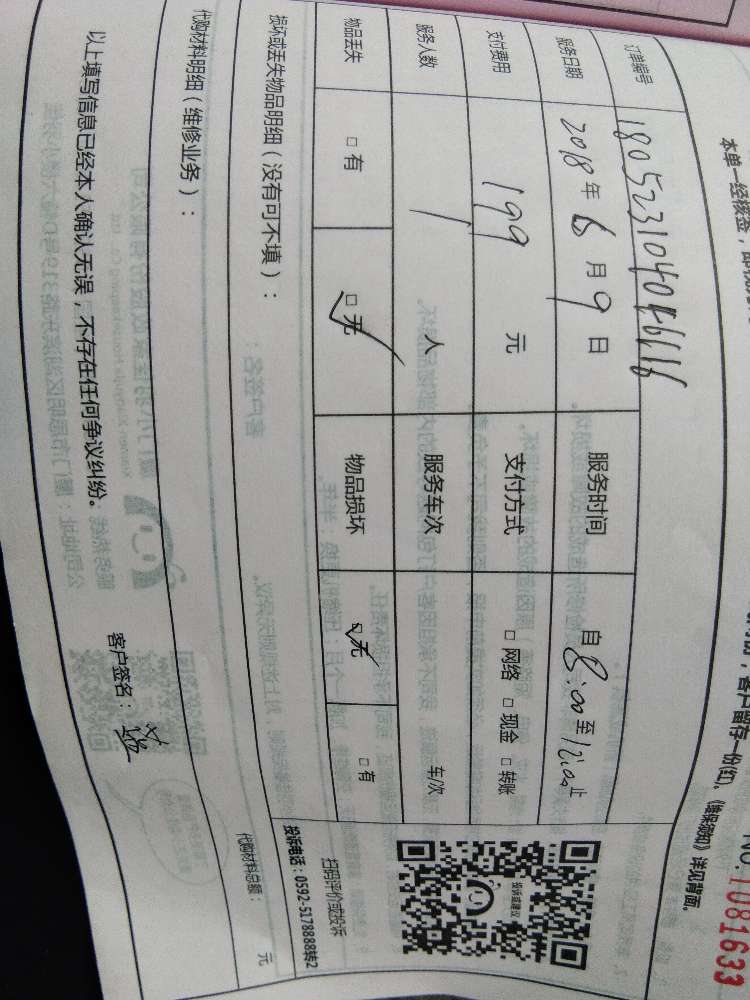 本单一经核签，
份，客户留存一份(红)，《维保须知》详见背面。
NO. 1081633
订单编号
服务日期 2018年6月9日 服务时间 自8:00至12:00止
支付费用 199 元 支付方式 □网络 □现金 □转账
服务人数 1 人 服务车次 车/次
物品丢失 □有 □无 物品损坏 □无 □有
扫码评价或投诉
投诉电话：0592-5178888转2
投诉或建议
损坏或丢失物品明细（没有可不填）：
代购材料明细（维修业务）： 代购材料总额： 元
以上填写信息已经本人确认无误，不存在任何争议纠纷。 客户签名：